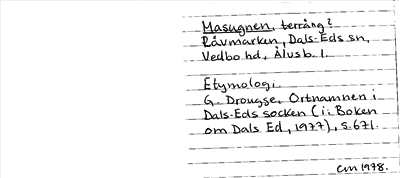 Masugnen, terräng?
Råvmarken, Dals-Eds sn,
Vedbo hd, Älvsb. l.
Etymologi
G. Drougge, Ortnamnen i
Dals-Eds socken (i: Boken
om Dals Ed, 1977), s. 671.
CM 1978.